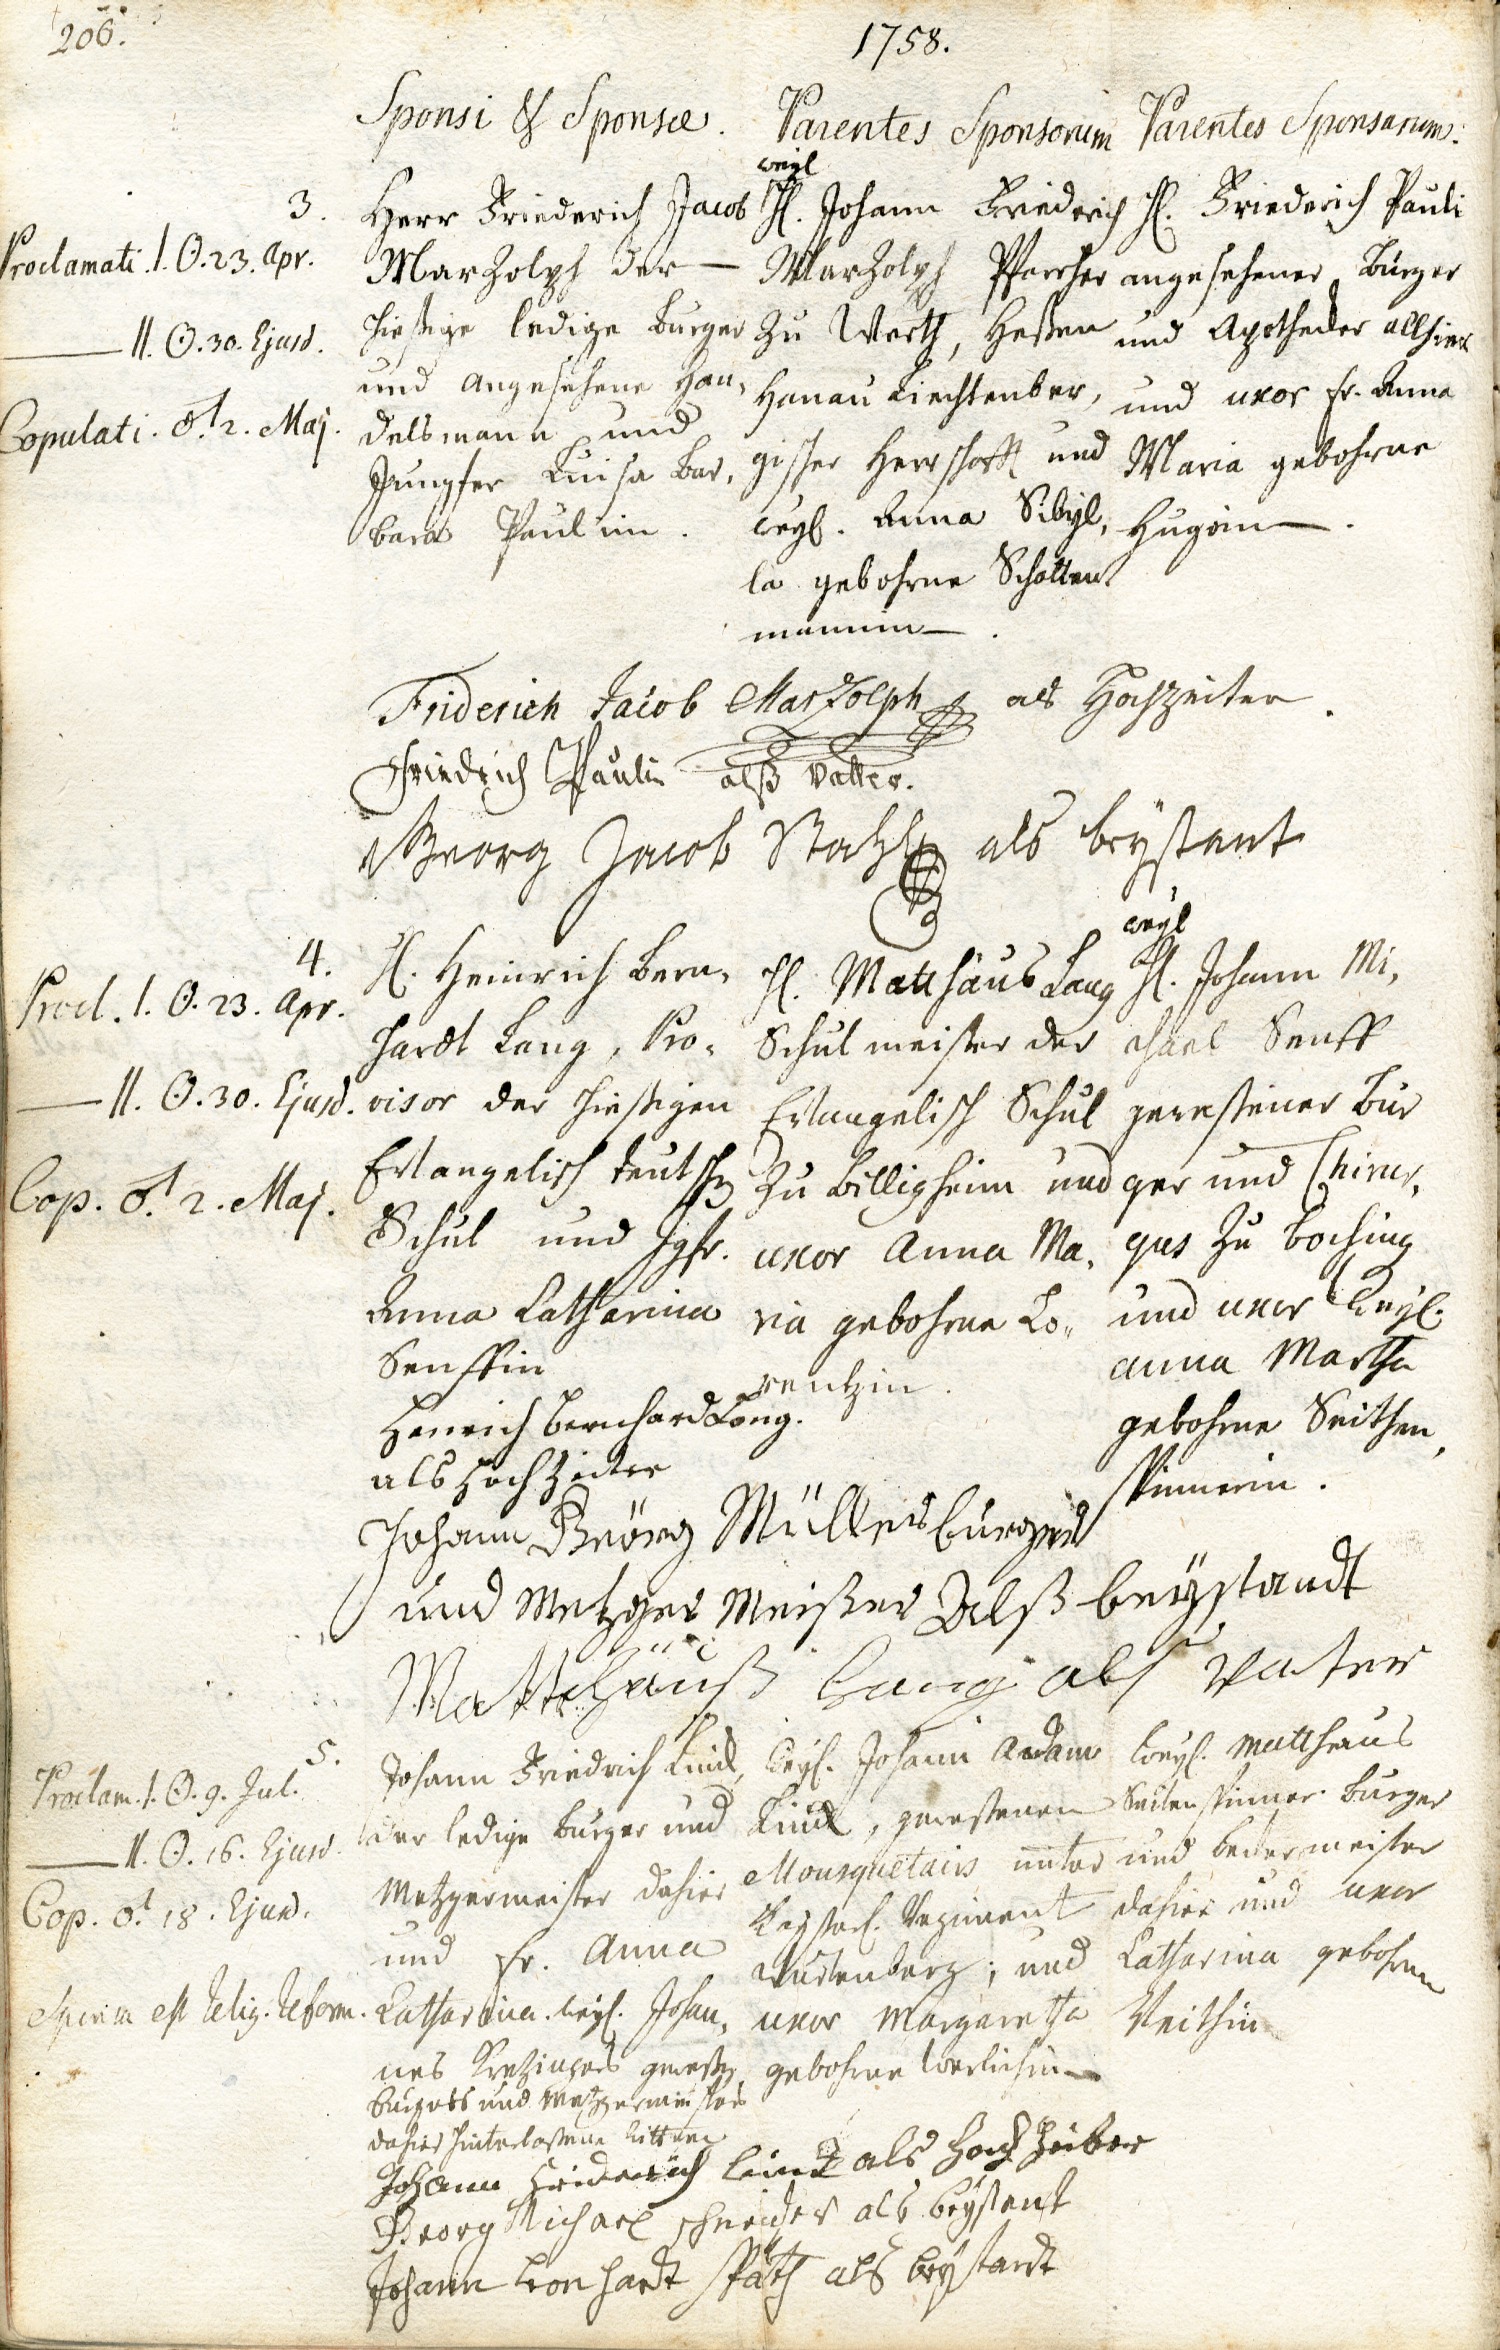 206.
1758.
Sponsi & Sponsæ.
Parentes Sponsorum
Parentes Sponsarum.
3.
Proclamati. I. ⊙. 23. Apr.
— II. ⊙. 30. Ejusd.
Copulati. ♂. 2. Maj.
Herr Friederich Jacob
Marzolph der —
hießige ledige Burger
und angesehene Han,
delsmann und
Jungfer Luisa Bar,
bara Paulin.
weyl
H. Johann Friederich
Marzolph Pfarrher
zu Werth, Heßen
Hanau Liechtenber,
gischer Herrschafft und
weyl. Anna Sibyl,
la gebohrne Schotten
mannin — .
H. Friederich Pauli
angesehener Burger
und Apothecker allhier
und uxor fr. Anna
Maria gebohrne
Hugoin — .
Friderich Jacob Marzolph als Hochzeiter.
Friedrich Pauli alß Vatter.
Georg Jacob Stahl als beystant
4.
Procl. I. ⊙. 23. Apr.
— II. ⊙. 30. Ejusd.
Cop. ♂. 2. Maj.
H. Heinrich Bern,
hardt Lang, Pro,
visor der hießigen
Evangelisch teutsch
Schul und Jgfr.
Anna Catharina
Senffin
H. Matthäus Lang
Schulmeister der
Evangelisch Schul
zu Billigheim und
uxor Anna Ma,
ria gebohrne Lo,
rentzin.
weyl
H. Johann Mi,
chael Senff
geweßener Bur
ger und Chirur,
gus zu Boching
und uxor weyl.
anna Martha
gebohrne Seithen,
spinnerin.
Henrich Bernhard Lang.
als Hochzeiter
Johann Geörg Müller burger
und Metzger Meister Alß beystandt
Matthäuß Lang als Vater
5.
Proclam. I. ⊙. 9. Jul.
— II. ⊙. 16. Ejusd.
Cop. ♂. 18. Ejusd.
Sponsa est Relig. Reform.
Johann Friedrich Linck,
der ledige Burger und
Metzgermeister dahier
und fr. Anna
Catharina. weyl. Johan,
nes geweß.
Burgers und Metzgermeisters
dahier hinterlaßene Wittwe
weyl. Johann Adam
Linck, geweßenen
Mousquetairs unter
Regiment
und
uxor Margaretha
gebohrne
weyl. Mattheus
Seitenspinner Burger
und beckermeister
dahier und uxor
Catharina gebohrne
Veithin
Johann Friderich Linck als Hochzeiter
Georg Michael Schneider als beystent
Johann Leonhardt Späth als beystandt